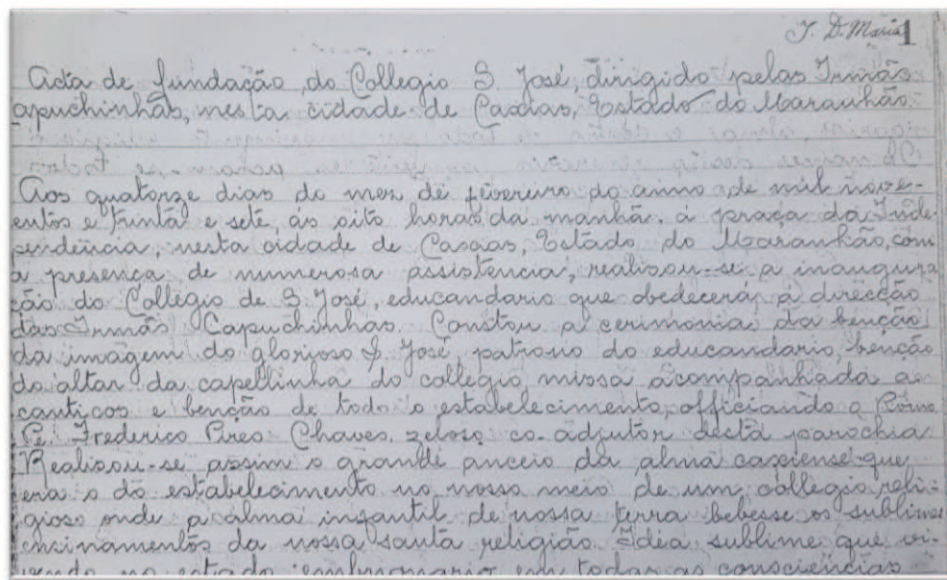 J. D. Maria 1
Acta de fundação do Collegio S. José, dirigido pelas Irmãs
apuchinhas, nesta cidade de Caxias, Estado do Maranhão.
Aos quatorze dias do mez de fevereiro do anno de mil nove-
entos e trinta e sete, ás oito horas da manhã, á praça da Inde-
pendencia, nesta cidade de Caxias, Estado do Maranhão, com
a presença de numerosa assistencia, realisou-se a inaugura
ção do Collegio de S. José, educandario que obedecerá á direcção
das Irmãs Capuchinhas. Constou a cerimonia da benção
da imagem do glorioso S. José, patrono do educandario, benção
do altar da capellinha do collegio, missa acompanhada a
canticos e benção de todo o estabelecimento, officiando o Rvmo
Pe. Frederico Pires Chaves, zeloso co-adjutor desta parochia.
Realisou-se assim o grande anceio da alma caxiense que
era o do estabelecimento no nosso meio de um collegio reli-
gioso onde a alma infantil de nossa terra bebesse os sublimes
ensinamentos da nossa santa religião. Idéa sublime que vi-
vendo no estado embrionario em todas as consciencias